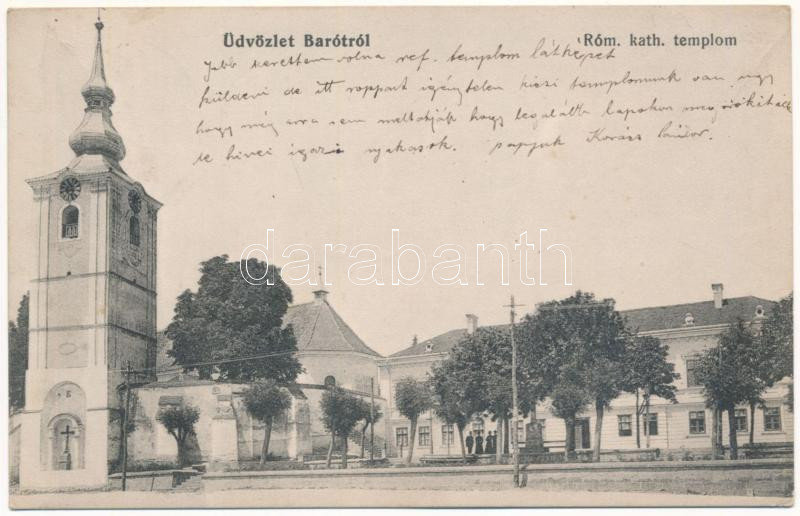 Üdvözlet Barótról
Róm. kath. templom
Jobb szerettem volna ref. templom látképet
küldeni de itt roppant igénytelen kicsi templomunk van úgy
hogy még arra sem méltatják hogy legalább lapokon
hívei igazi nyakasok. papjuk Kovács Sándor.
darabanth